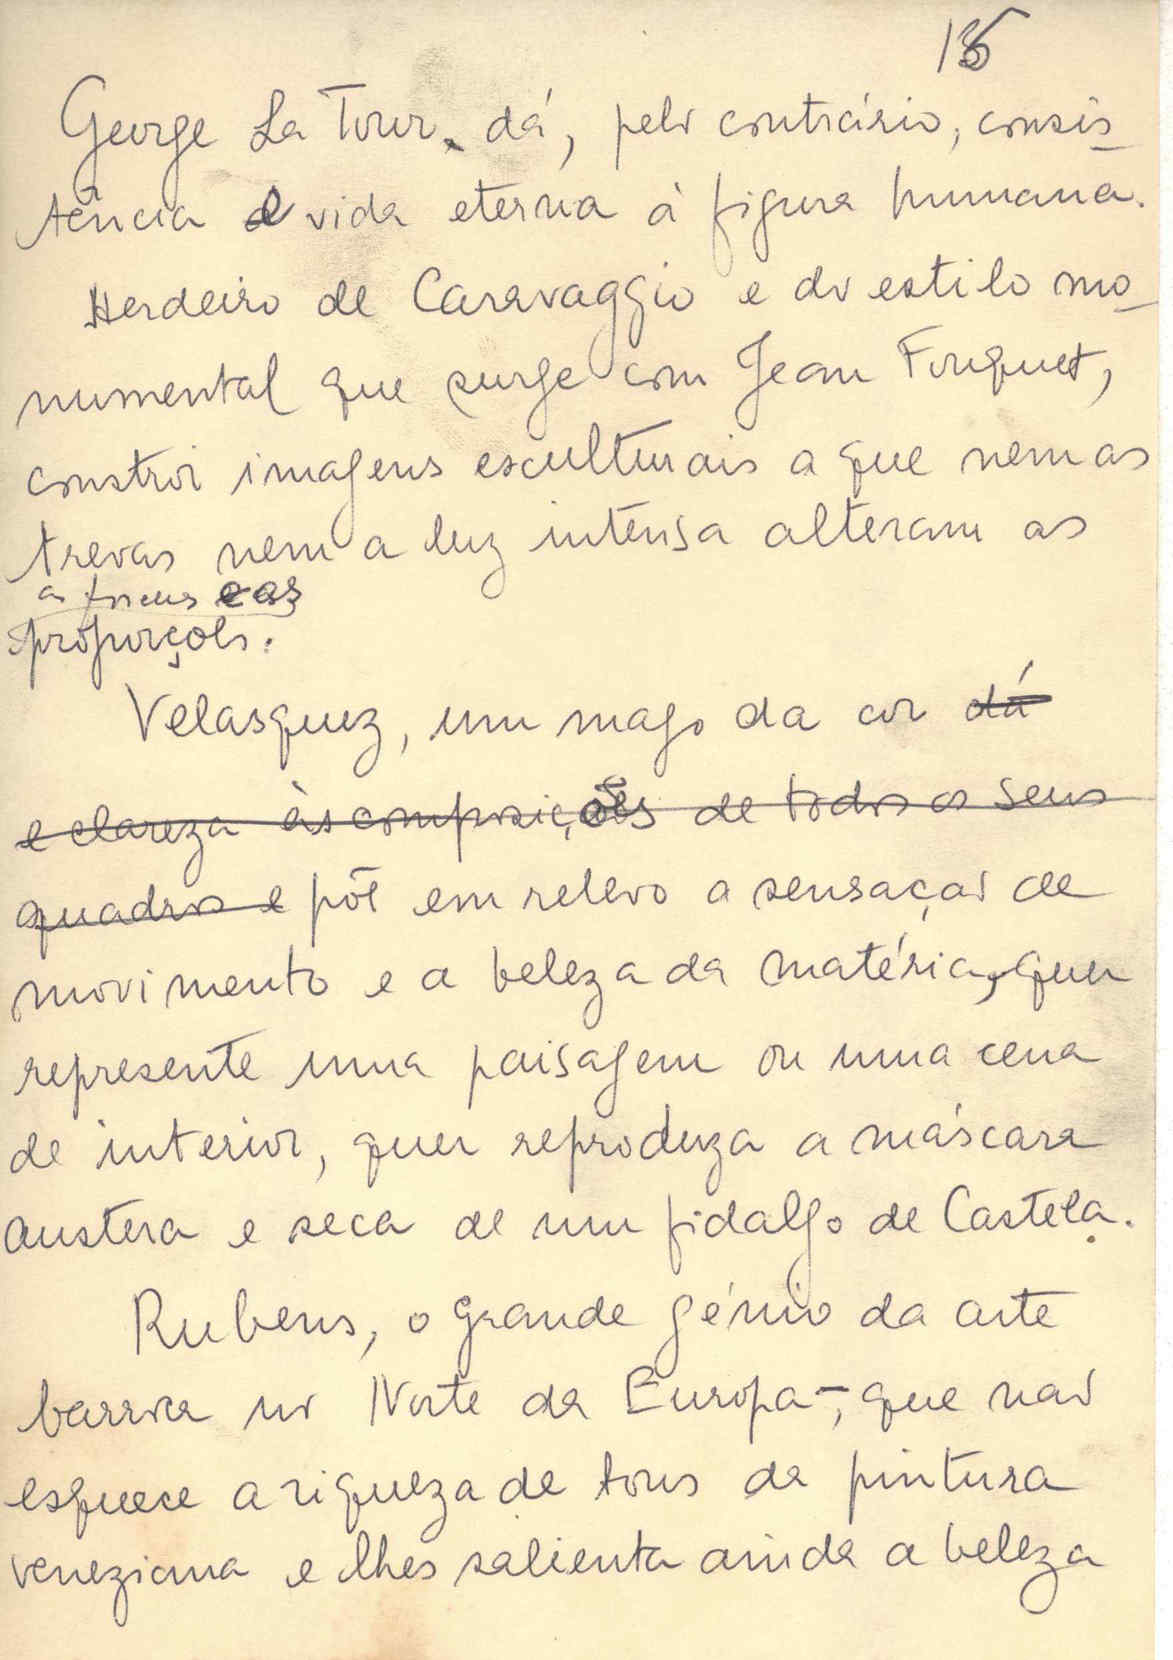 George La Tour, dá, pelo contrário, consis-
tência e vida eterna à figura humana.
Herdeiro de Caravaggio e do estilo mo-
numental que surge com Jean Fouquet,
constroi imagens esculturais a que nem as
trevas nem a luz intensa alteram as
as formas e as
proporções.
Velasquez, um mago da cor dá
e clareza às composições de todos os seus
quadros e põe em relevo a sensação de
movimento e a beleza da matéria, quer
represente uma paisagem ou uma cena
de interior, quer reproduza a máscara
austera e seca de um fidalgo de Castela.
Rubens, o grande génio da arte
barroca no Norte da Europa -, que não
esquece a riqueza de tons da pintura
veneziana e lhes salienta ainda a beleza